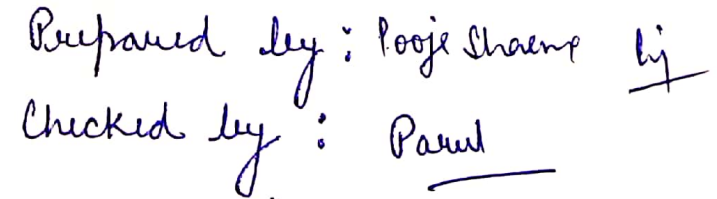 Prepared by : Pooja Sharma
Checked by : Parul